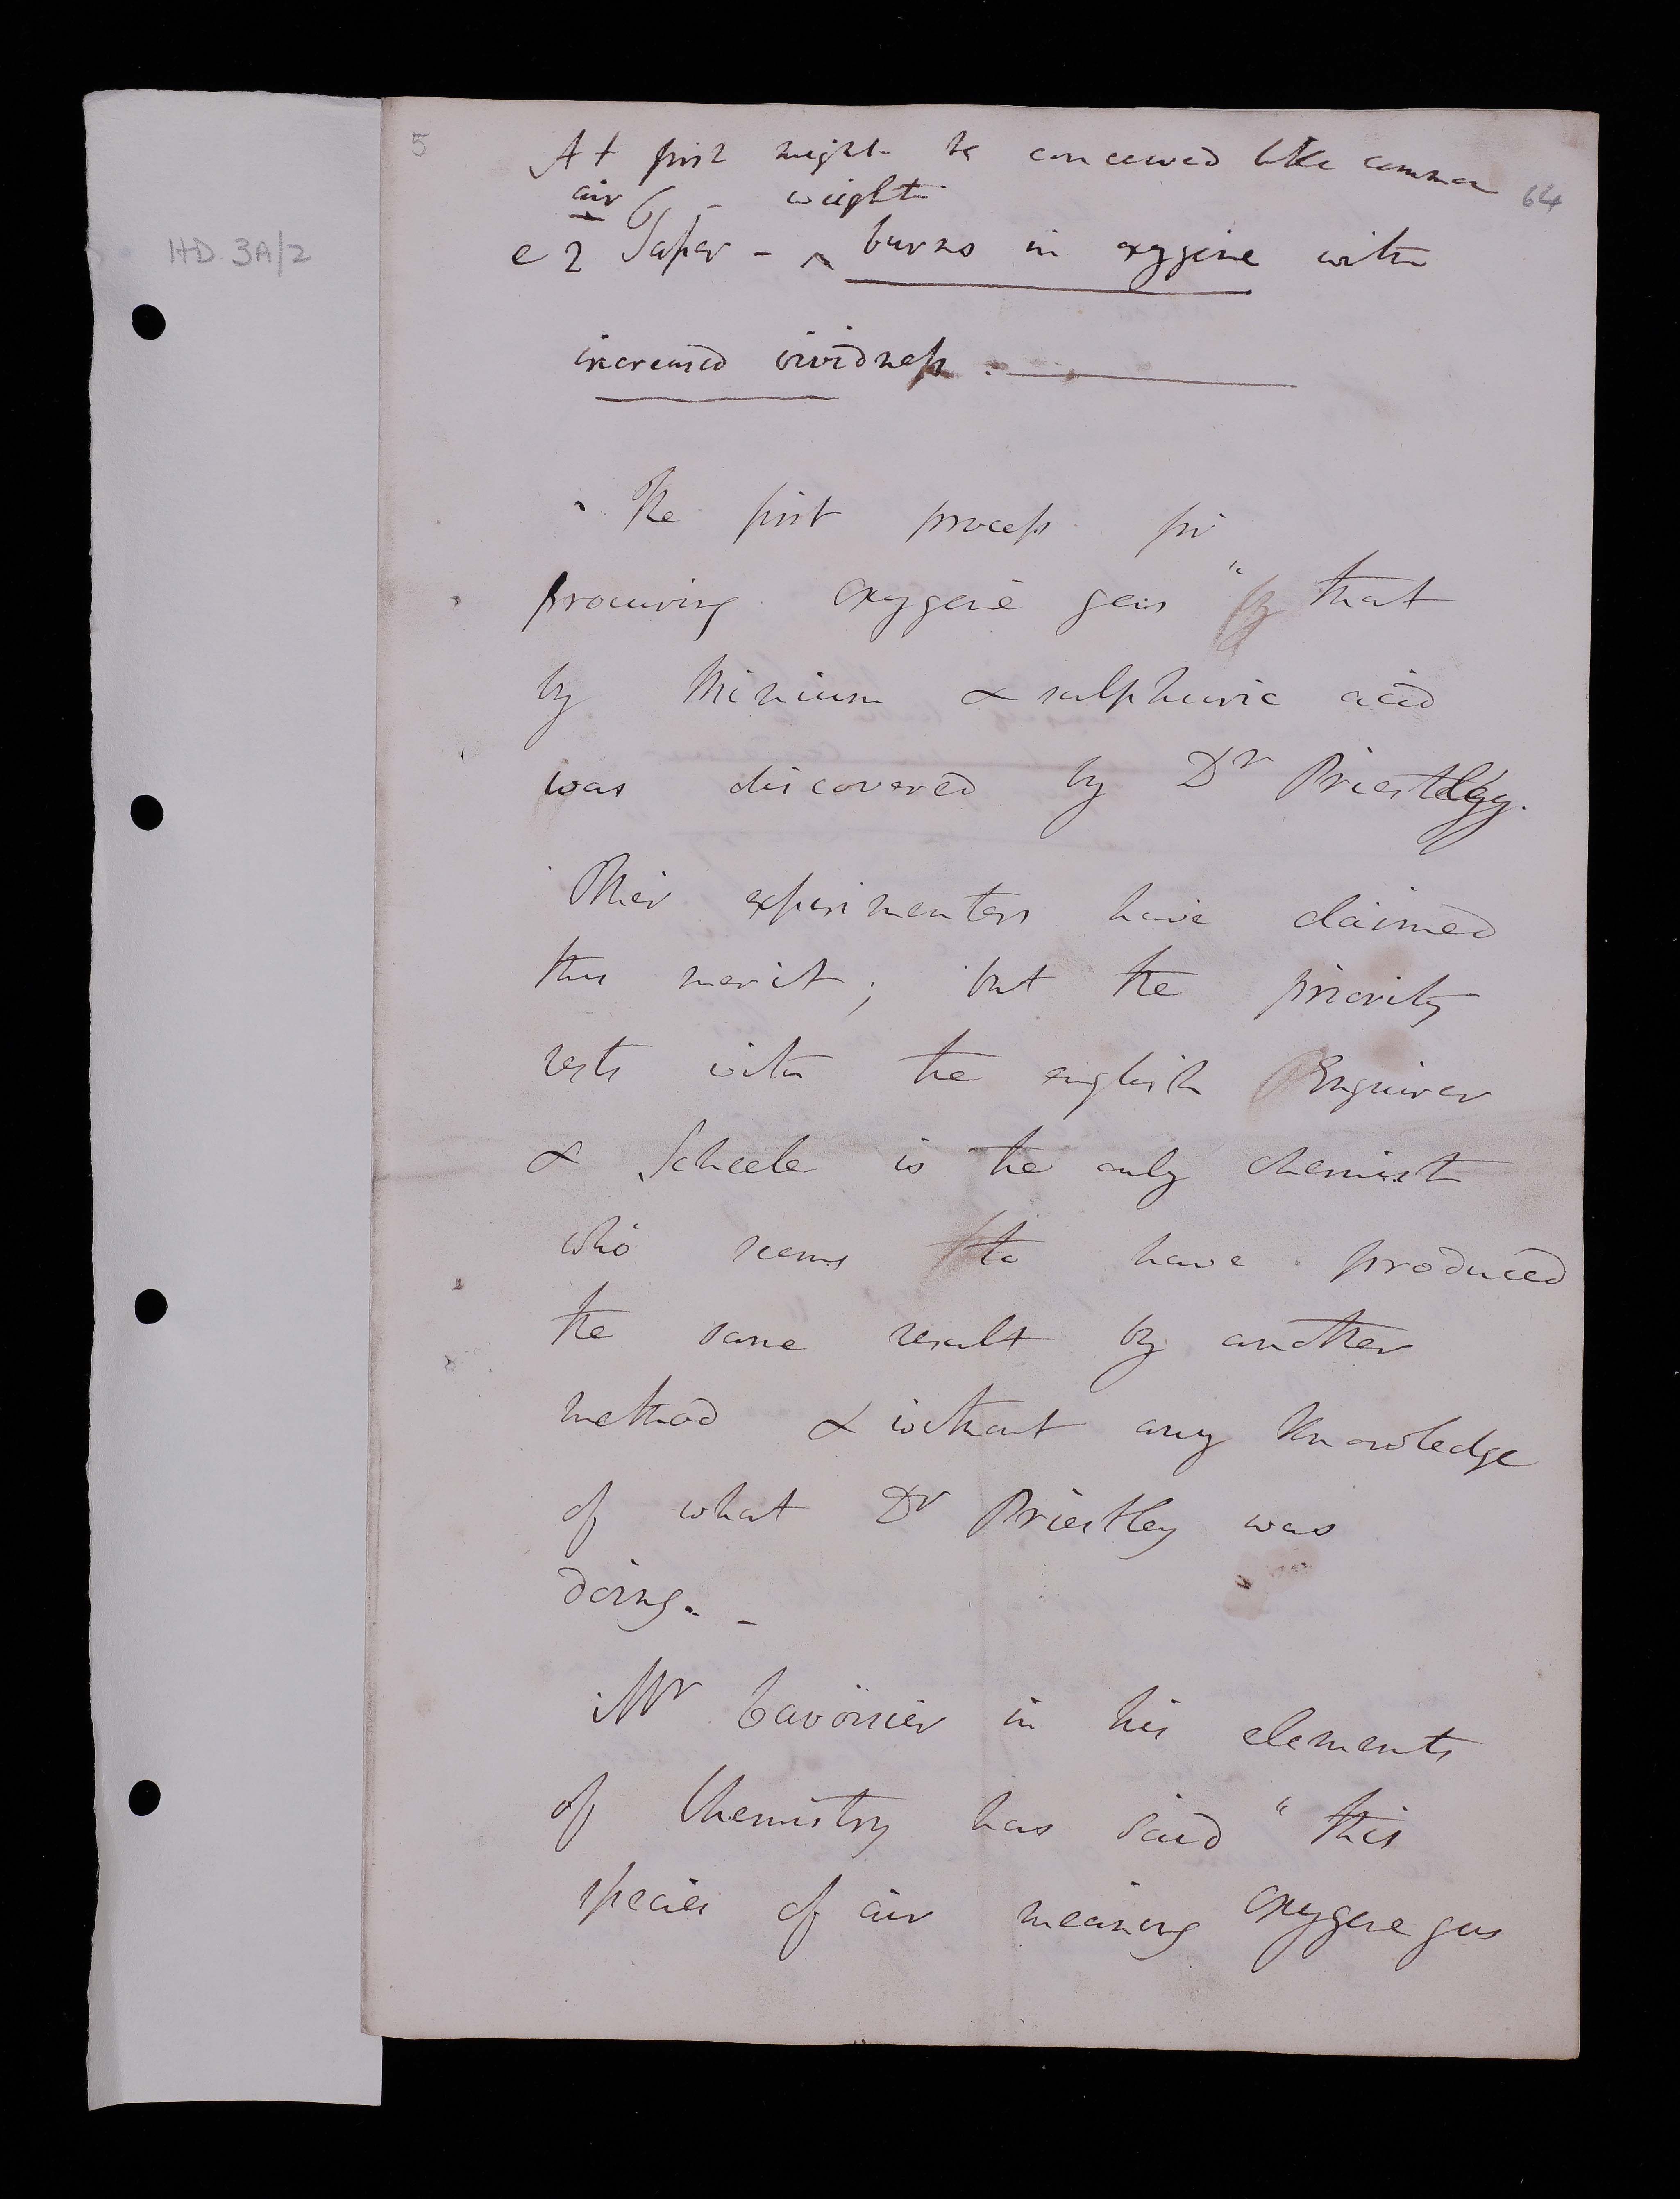 5
At first might be conceived like common
64
air weight
HD. 3A/2
e 2 Taper - ^ burns in oxygene with
increased vividness.
The first process for
procuring oxygene gas " that
by Minium & sulphuric acid
was discovered by Dr Priestley.
Other experimenters have claimed
this merit; but the priority
rests with the english Enquirer
& Scheele is the only chemist
who seems to have produced
the same result by another
method & without any Knowledge
of what Dr Priestley was
doing. -
Mr Lavoisier in his elements
of Chemistry has said " this
species of air meaning oxygene gas